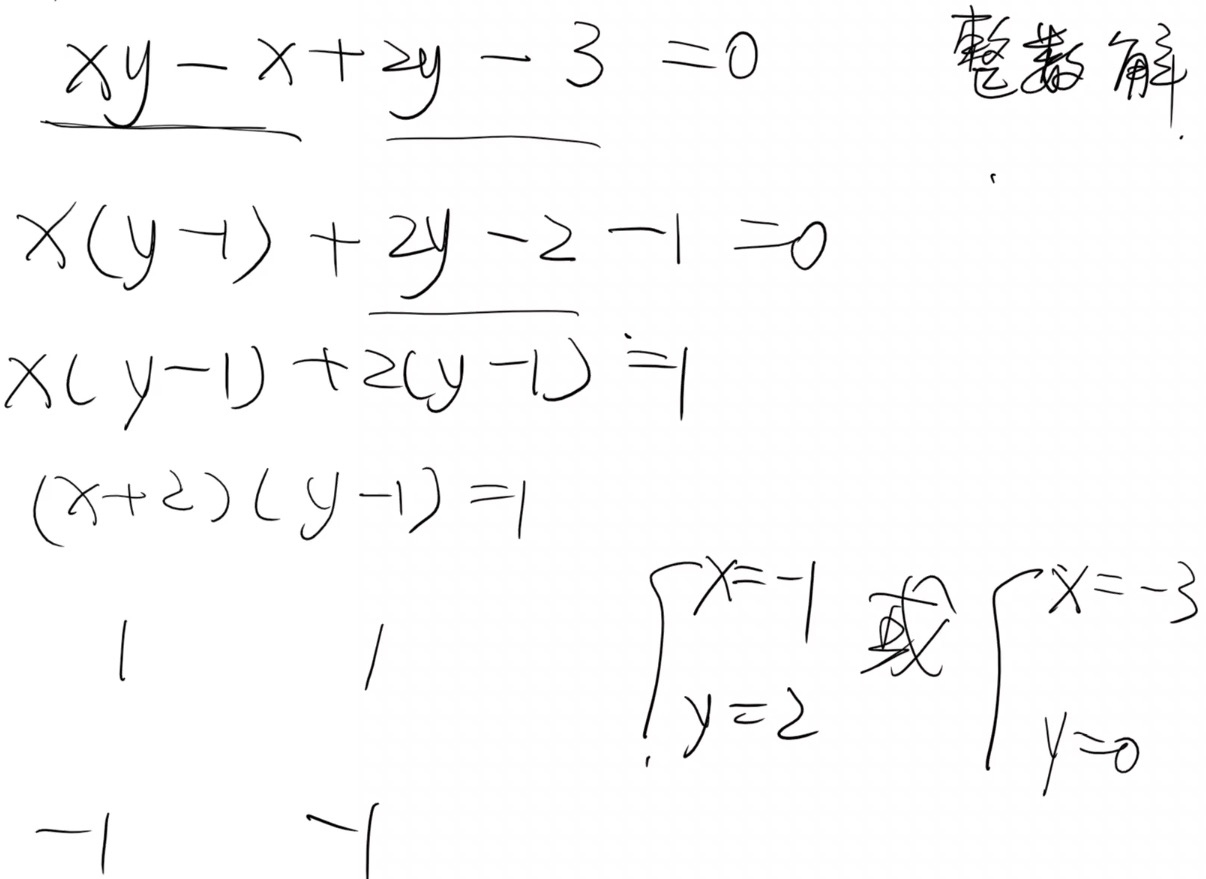 xy - x + 2y - 3 = 0 整数解.
x(y-1) + 2y - 2 - 1 = 0
x(y-1) + 2(y-1) = 1
(x+2)(y-1) = 1
1 1
-1 -1
{ x = -1 或 { x = -3
y = 2 y = 0